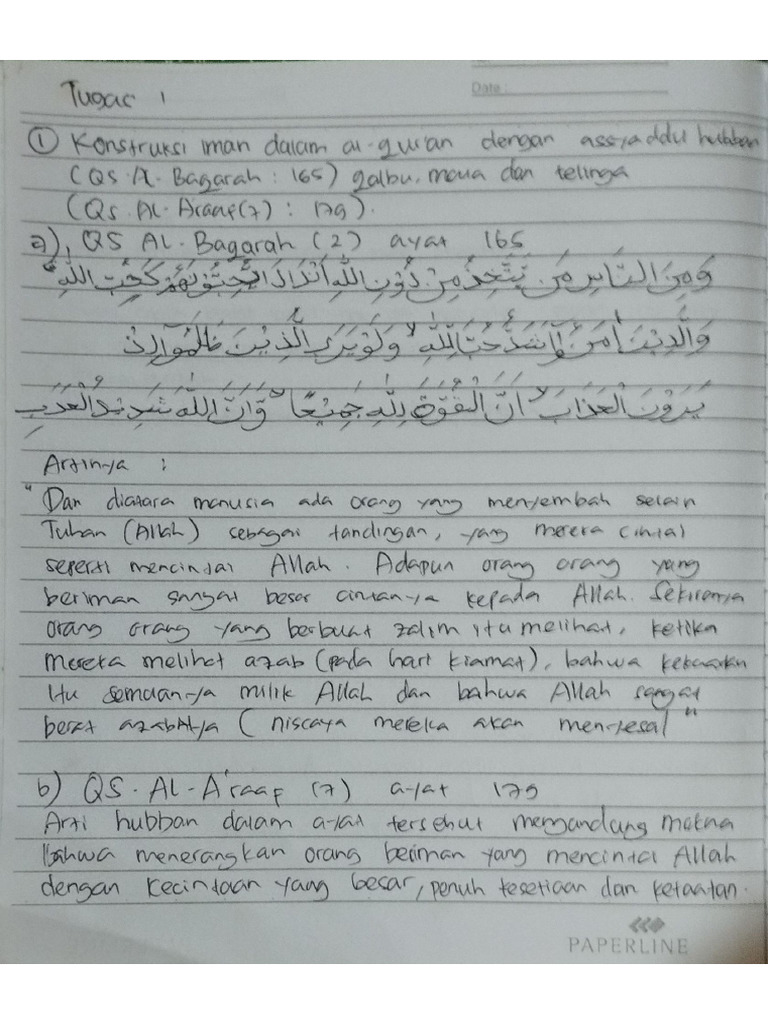 Date :
Tugas 1
① Konstruksi iman dalam al-qur'an dengan assyaddu hubban
(QS. Al-Baqarah : 165) qalbu, mata dan telinga
(QS. Al-A'raaf (7) : 179).
a), QS Al-Baqarah (2) ayat 165
وَمِنَ النَّاسِ مَن يَتَّخِذُ مِنْ دُوْنِ اللّٰهِ اَنْدَادًا يُّحِبُّوْنَهُمْ كَحُبِّ اللّٰهِ ۗ
وَالَّذِيْنَ اٰمَنُوْٓا اَشَدُّ حُبًّا لِّلّٰهِ ۙ وَلَوْ يَرَى الَّذِيْنَ ظَلَمُوْٓا اِذْ
يَرَوْنَ الْعَذَابَ ۙ اَنَّ الْقُوَّةَ لِلّٰهِ جَمِيْعًا ۙ وَّاَنَّ اللّٰهَ شَدِيْدُ الْعَذَابِ
Artinya :
"Dan diatara manusia ada orang yang menyembah selain
Tuhan (Allah) sebagai tandingan, yang mereka cintai
seperti mencintai Allah. Adapun orang orang yang
beriman sangat besar cintanya kepada Allah. Sekiranya
orang orang yang berbuat zalim itu melihat, ketika
mereka melihat azab (pada hari kiamat), bahwa kekuatan
itu semuanya milik Allah dan bahwa Allah sangat
berat azabNya (niscaya mereka akan menyesal"
b) QS. Al-A'raaf (7) ayat 179
Arti hubban dalam ayat tersebut mengandung makna
bahwa menerangkan orang beriman yang mencintai Allah
dengan kecintaan yang besar, penuh kesetiaan dan ketaatan.
PAPERLINE